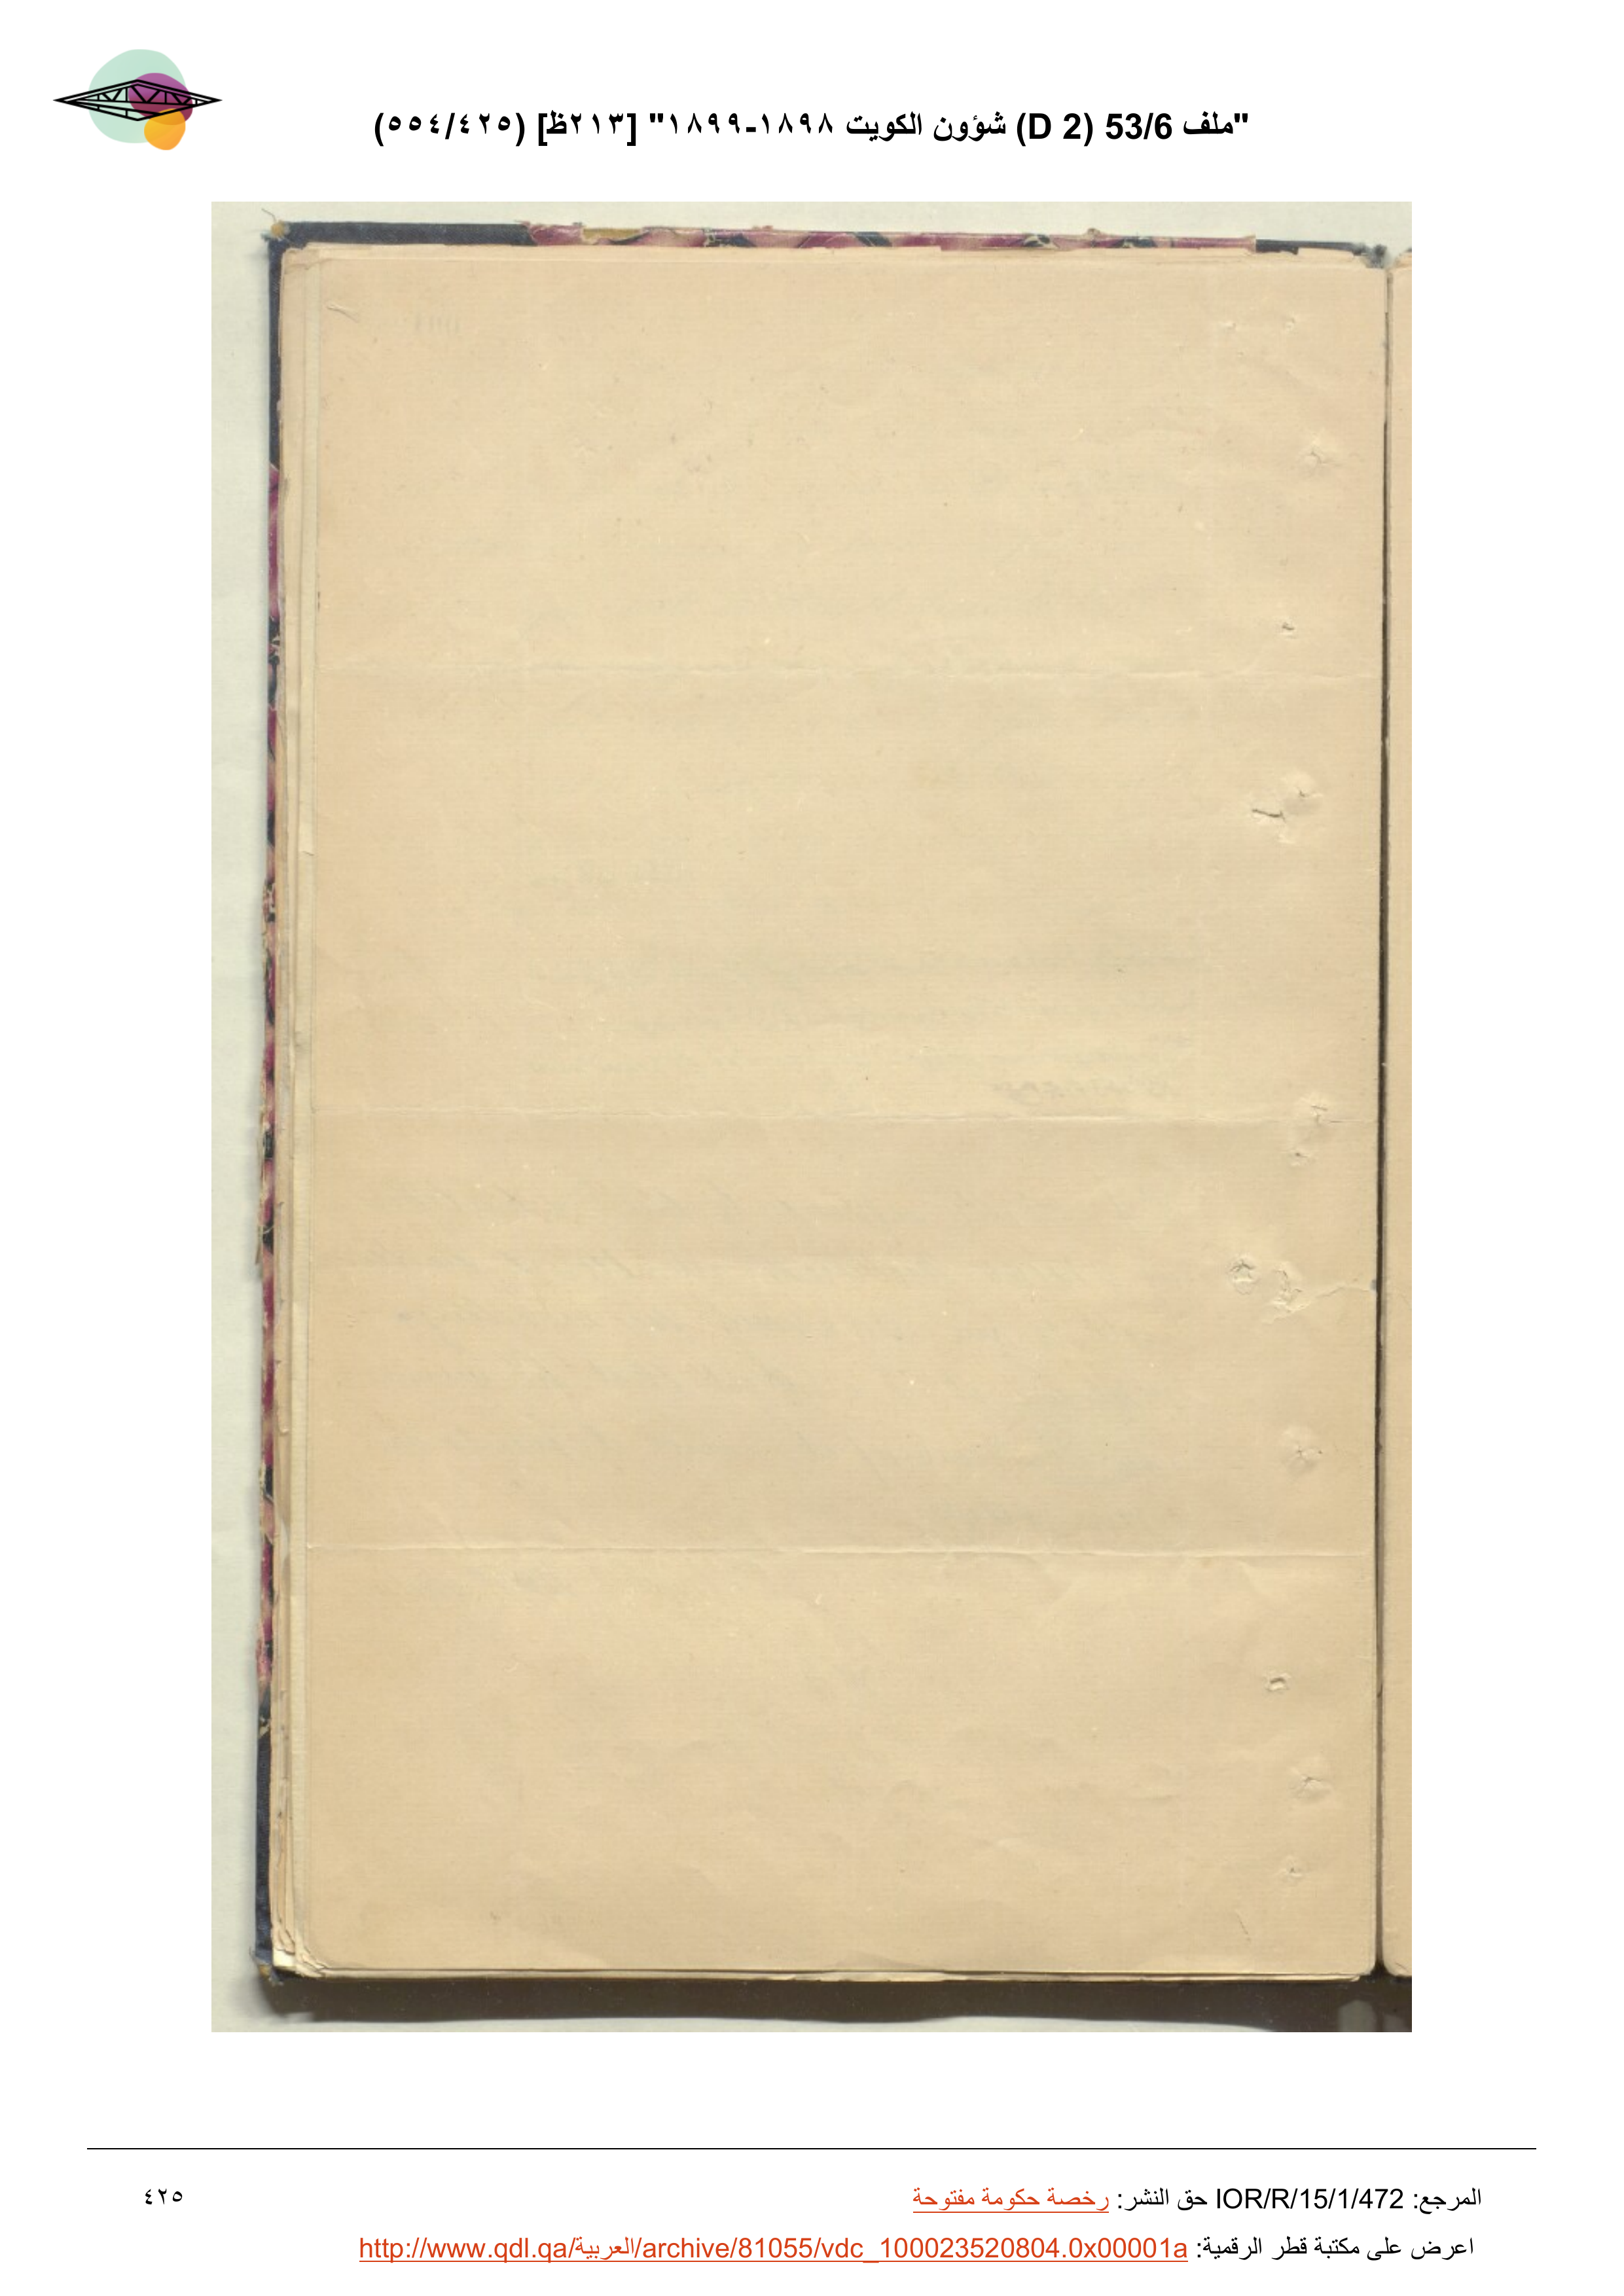 "ملف 53/6 (D 2) شؤون الكويت ١٨٩٨-١٨٩٩" [٢١٣ظ] (٥٥٤/٤٢٥)
المرجع: IOR/R/15/1/472 حق النشر: رخصة حكومة مفتوحة
٤٢٥
اعرض على مكتبة قطر الرقمية: http://www.qdl.qa/العربية/archive/81055/vdc_100023520804.0x00001a